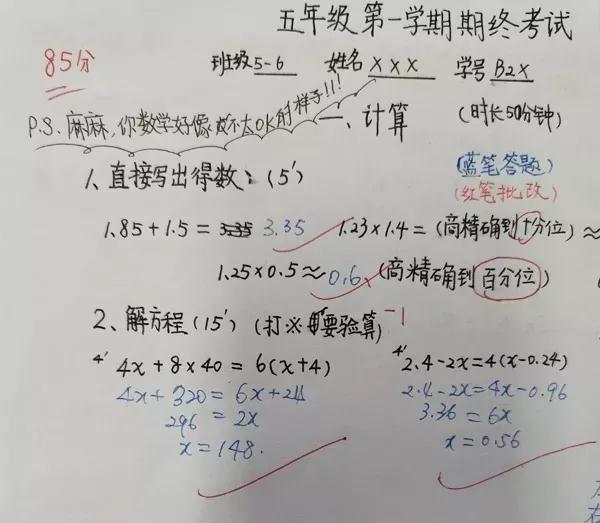 五年级第一学期期终考试
85分
班级5-6 姓名XXX 学号B2X
P.S.麻麻,你数学好像不太OK的样子!!!
一、计算
(时长50分钟)
(蓝笔答题)
(红笔批改)
1、直接写出得数:(5')
1.85+1.5= 3.35 1.23×1.4=(商精确到十分位)≈
1.25×0.5≈0.6 (商精确到百分位)
2、解方程(15')(打※要验算) -1
4' 4x+8×40=6(x+4)
4x+320=6x+24
296=2x
x=148.
4' 2.4-2x=4(x-0.24)
2.4-2x=4x-0.96
3.36=6x
x=0.56